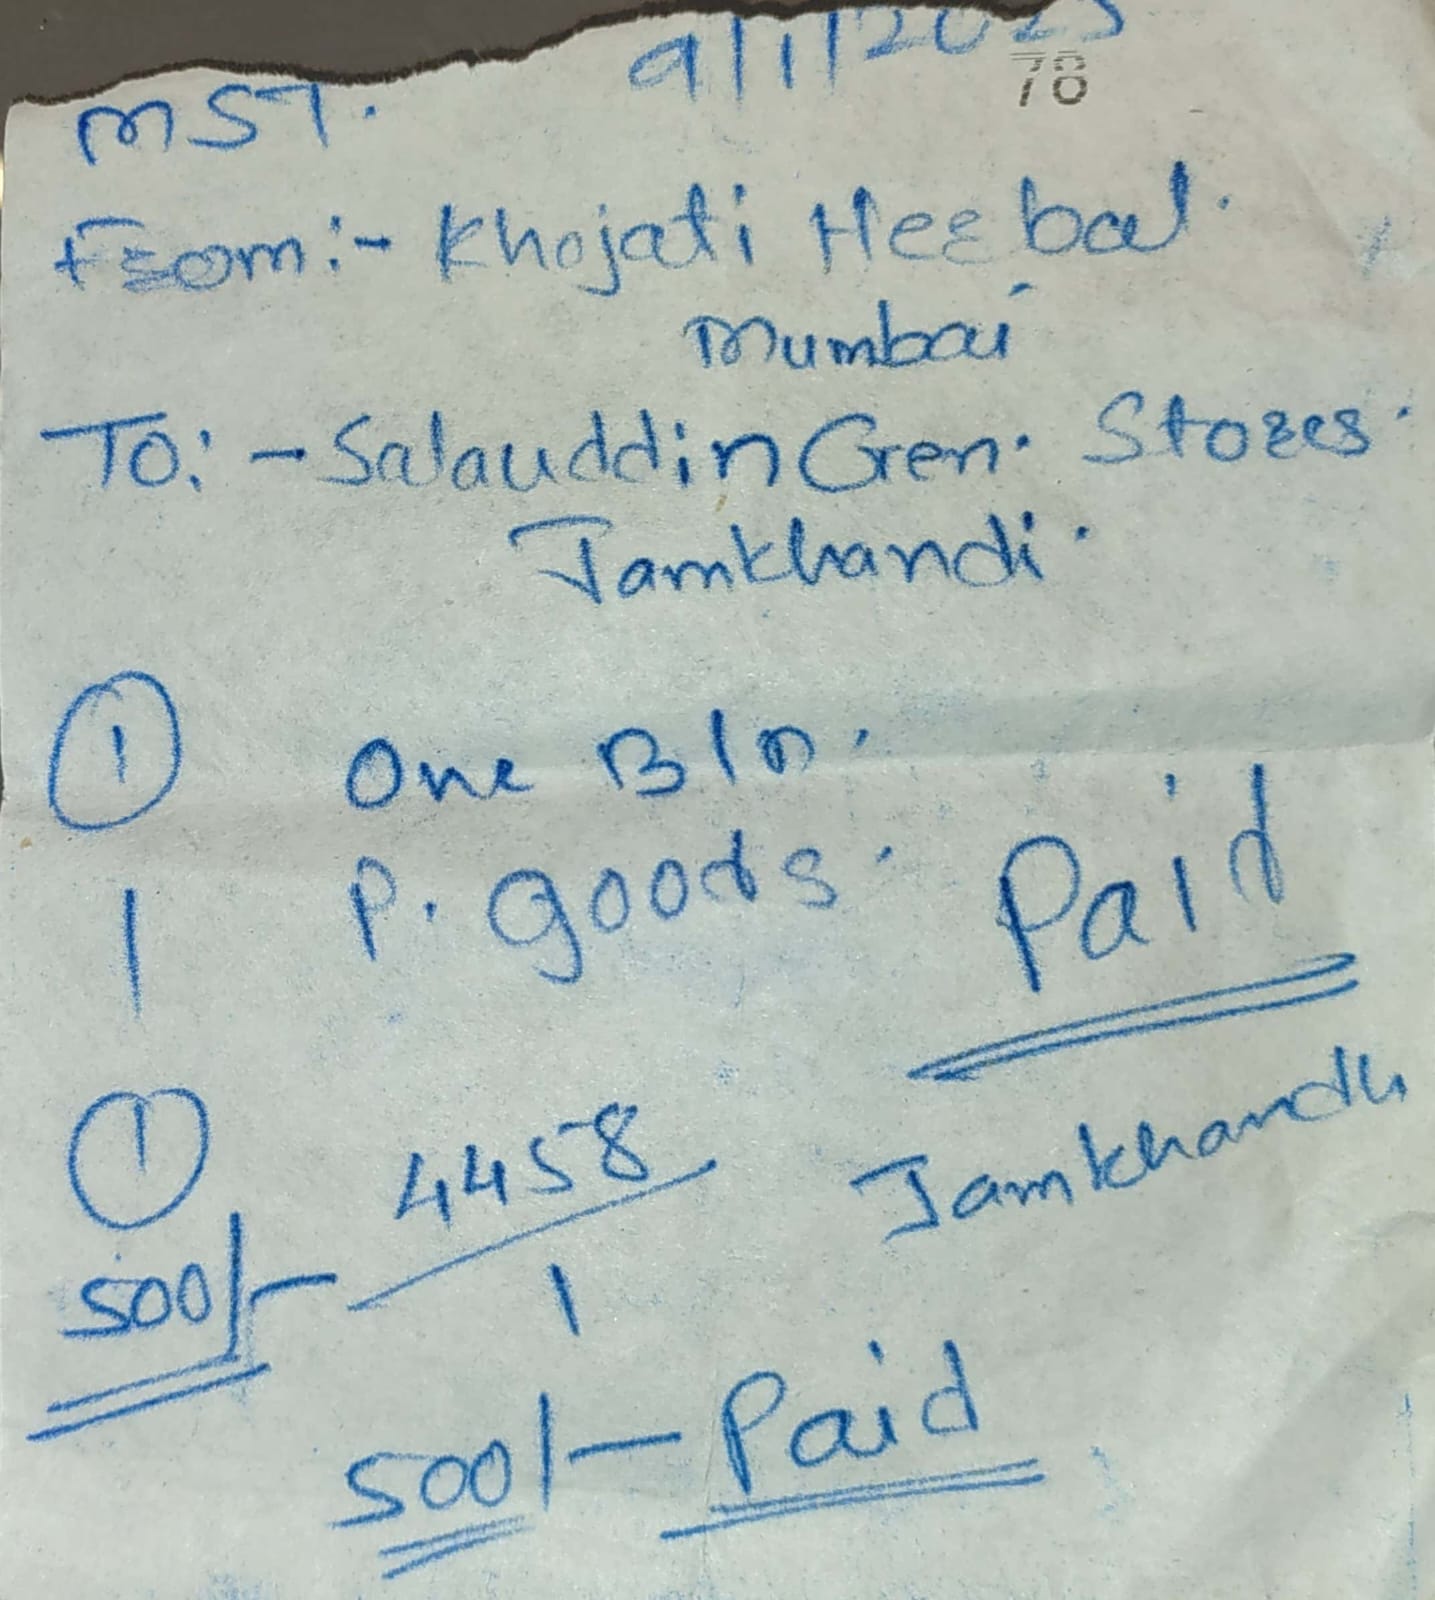 9/1/2025
78
MST.
From:- Khojati Heerbal.
Mumbai
To:- Salauddin Gen. Stores.
Jamkhandi.
1 One Bln.
1 P. goods. Paid
1 4458/1 Jamkhandi
500/-
500/- Paid